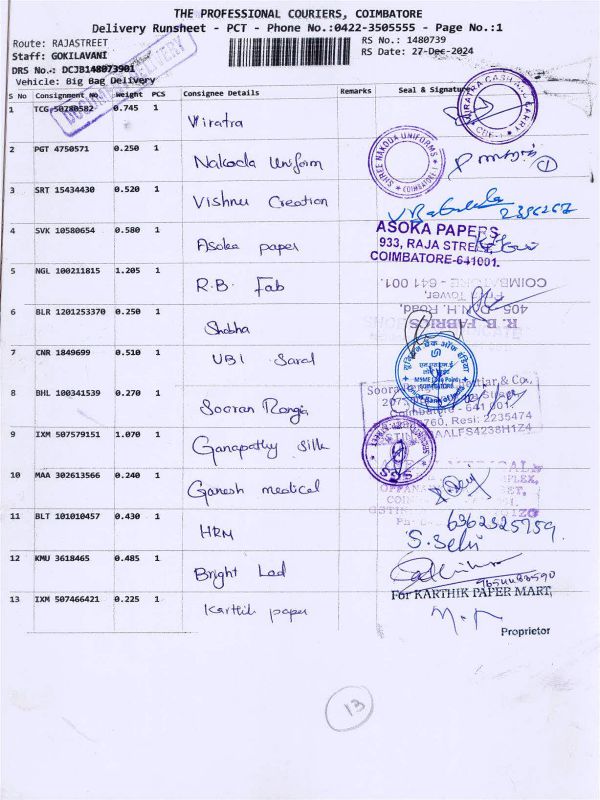 THE PROFESSIONAL COURIERS, COIMBATORE
Delivery Runsheet - PCT - Phone No.:0422-3505555 - Page No.:1
Route: RAJASTREET
RS No.: 1480739
Staff: GOKILAVANI
RS Date: 27-Dec-2024
DRS No.: DCJB148073901
Vehicle: Big Bag Delivery
S No Consignment No Weight PCS Consignee Details Remarks Seal & Signature
1 TCG 50280582 0.745 1 Viratra
2 PGT 4750571 0.250 1 Nakoda Uniform
SHREE NAKODA UNIFORMS
1
3 SRT 15434430 0.520 1 Vishnu Creation
4 SVK 10580654 0.580 1 Asoka paper
ASOKA PAPERS
933, RAJA STREET,
COIMBATORE-641001.
5 NGL 100211815 1.205 1 R.B. Fab
R. B. FABRICS
405 D.N.H. Road,
COIMBATORE - 641 001.
6 BLR 1201253370 0.250 1 Shobha
7 CNR 1849699 0.510 1 UBI Saral
यूनियन बैंक ऑफ इंडिया
Union Bank of India
8 BHL 100341539 0.270 1 Sooran Rangia
Coimbatore - 641 001
Resi: 2235474
9 IXM 507579151 1.070 1 Ganapathy Silk
SGS
10 MAA 302613566 0.240 1 Ganesh medical
11 BLT 101010457 0.430 1 HRM
6362325759.
S. Selvi
12 KMU 3618465 0.485 1 Bright Led
13 IXM 507466421 0.225 1 Karthik paper
For KARTHIK PAPER MART,
Proprietor
13